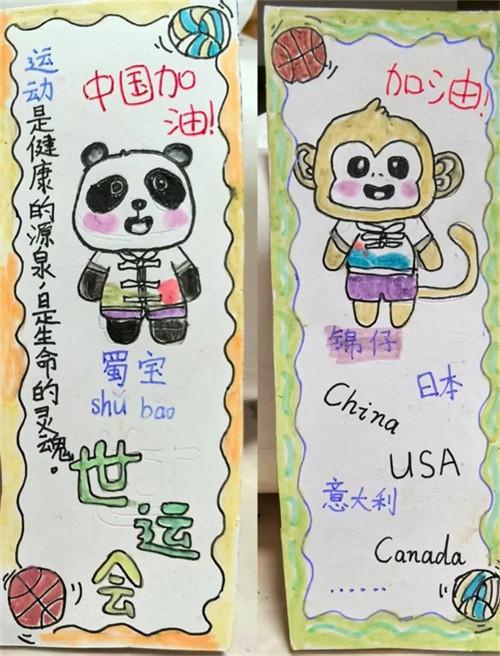 中国加
油!
运动是健康的源泉,是生命的灵魂。
蜀宝
shǔ bao
世
运
会
加油!
锦仔
日本
China
USA
意大利
Canada
......